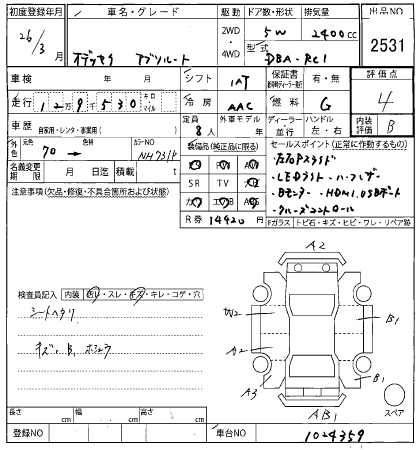 初度登録年月 車名・グレード 駆動 ドア数・形状 排気量 出品NO
26/3月 オデッセイ アブソルート 2WD・4WD 5W 2400cc 2531
型式 DBA-RC1
車検 年 月 シフト IAT 保証書 有・無 評価点
走行 12万9千530 キロ・マイル 冷房 AAC 燃料 G 4
車歴 自家用・レンタ・事業用( ) 定員 8人 外車モデル 年 ディーラー 並行 ハンドル 左・右 内装評価 B
外色 元色 70 → 色替 カラーNO NH731P 装備品(純正品に限る) セールスポイント(正常に作動するもの)
名義変更期限 月 日迄 積載 t SR TV
R券 14420円
・LEDライト
・Bモニター・HDMI.USBポート
・クルーズコントロール
注意事項(欠品・修復・不具合箇所および状態) Fガラス トビ石・キズ・ヒビ・ワレ・リペア跡
A2
検査員記入 内装 スレ・キズ・キレ・コゲ・穴
シートヘタリ W2 B1
キズ、B1 A2
A3 B1
AB1 スペア
長さ cm 幅 cm 高さ cm
登録NO 車台NO 1024359